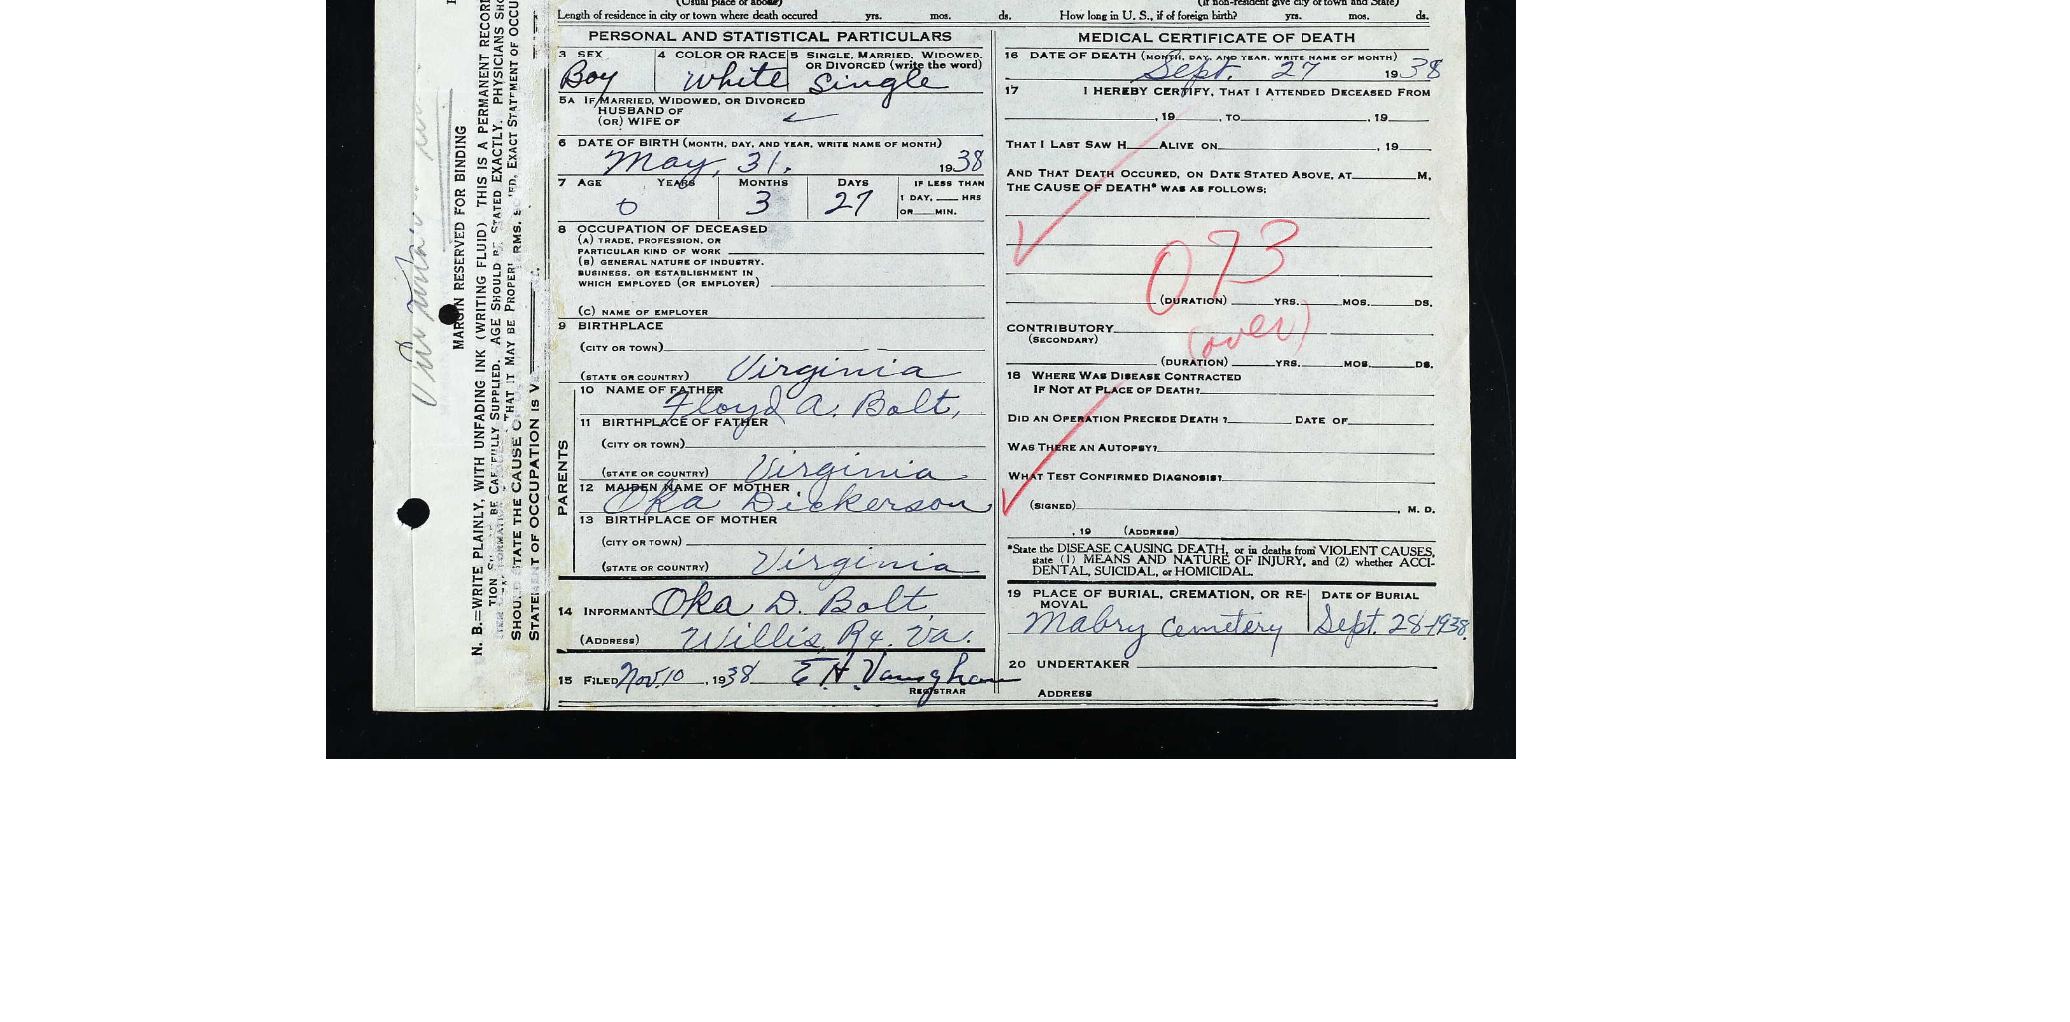 (Usual place of abode)
(If non-resident give city or town and State)
Length of residence in city or town where death occured yrs. mos. ds. How long in U. S., if of foreign birth? yrs. mos. ds.
PERSONAL AND STATISTICAL PARTICULARS
3 SEX 4 COLOR OR RACE 5 SINGLE, MARRIED, WIDOWED,
OR DIVORCED (write the word)
Boy White Single
5A IF MARRIED, WIDOWED, OR DIVORCED
HUSBAND OF
(OR) WIFE OF
6 DATE OF BIRTH (MONTH, DAY, AND YEAR, WRITE NAME OF MONTH)
May, 31. 1938
7 AGE YEARS MONTHS DAYS IF LESS THAN
1 DAY, HRS
OR MIN.
0 3 27
8 OCCUPATION OF DECEASED
(A) TRADE, PROFESSION, OR
PARTICULAR KIND OF WORK
(B) GENERAL NATURE OF INDUSTRY,
BUSINESS, OR ESTABLISHMENT IN
WHICH EMPLOYED (OR EMPLOYER)
(C) NAME OF EMPLOYER
9 BIRTHPLACE
(CITY OR TOWN)
(STATE OR COUNTRY) Virginia
PARENTS
10 NAME OF FATHER
Floyd A. Bolt,
11 BIRTHPLACE OF FATHER
(CITY OR TOWN)
(STATE OR COUNTRY) Virginia
12 MAIDEN NAME OF MOTHER
Oka Dickerson
13 BIRTHPLACE OF MOTHER
(CITY OR TOWN)
(STATE OR COUNTRY) Virginia
14 INFORMANT Oka D. Bolt,
(ADDRESS) Willis, R4. Va.
15 FILED Nov. 10, 1938 E H. Vaughan
REGISTRAR
MEDICAL CERTIFICATE OF DEATH
16 DATE OF DEATH (MONTH, DAY, AND YEAR, WRITE NAME OF MONTH)
Sept. 27 1938
17 I HEREBY CERTIFY, THAT I ATTENDED DECEASED FROM
, 19 , TO , 19
THAT I LAST SAW H ALIVE ON , 19
AND THAT DEATH OCCURED, ON DATE STATED ABOVE, AT M,
THE CAUSE OF DEATH* WAS AS FOLLOWS:
073
(DURATION) YRS. MOS. DS.
(over)
CONTRIBUTORY
(SECONDARY)
(DURATION) YRS. MOS. DS.
18 WHERE WAS DISEASE CONTRACTED
IF NOT AT PLACE OF DEATH?
DID AN OPERATION PRECEDE DEATH ? DATE OF
WAS THERE AN AUTOPSY?
WHAT TEST CONFIRMED DIAGNOSIS?
(SIGNED) , M. D.
, 19 (ADDRESS)
*State the DISEASE CAUSING DEATH, or in deaths from VIOLENT CAUSES,
state (1) MEANS AND NATURE OF INJURY, and (2) whether ACCI-
DENTAL, SUICIDAL, or HOMICIDAL.
19 PLACE OF BURIAL, CREMATION, OR RE- DATE OF BURIAL
MOVAL
Mabry Cemetery Sept. 28-1938.
20 UNDERTAKER
ADDRESS
MARGIN RESERVED FOR BINDING
N. B.=WRITE PLAINLY, WITH UNFADING INK (WRITING FLUID) THIS IS A PERMANENT RECOR
BE CAREFULLY SUPPLIED. AGE SHOULD STATED EXACTLY. PHYSICIANS
STATE THE CAUSE THAT IT MAY BE EXACT STATEMENT OF OCCU
STATEMENT OF OCCUPATION IS